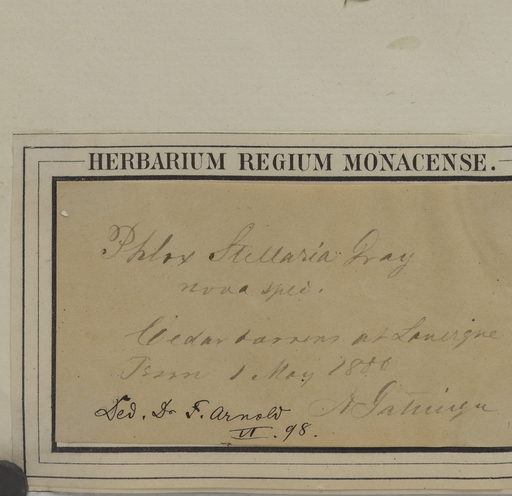 HERBARIUM REGIUM MONACENSE.
Phlox Stellaria Gray
nova spec.
Cedar barrens at Lavergne
Tenn 1 May 1880
A Gattinger
Ded. Dr F. Arnold
VI. 98.